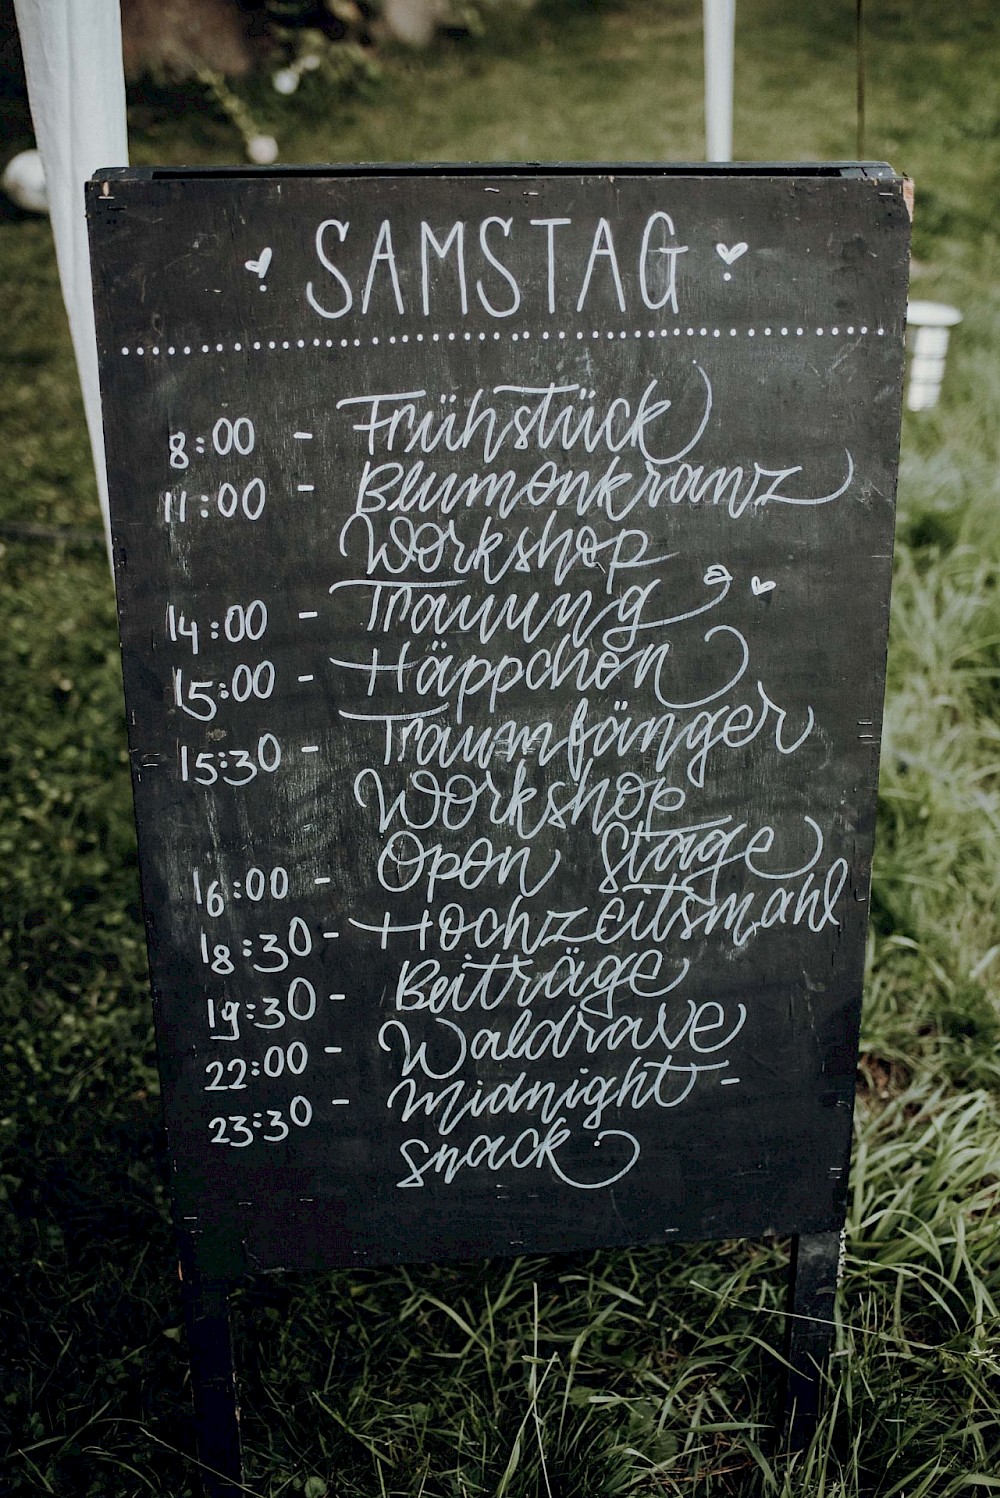 SAMSTAG
8:00 - Frühstück
11:00 - Blumenkranz
Workshop
14:00 - Trauung
15:00 - Häppchen
15:30 - Traumfänger
Workshop
16:00 - Open Stage
18:30 - Hochzeitsmahl
19:30 - Beiträge
22:00 - Waldrave
23:30 - Midnight -
snack